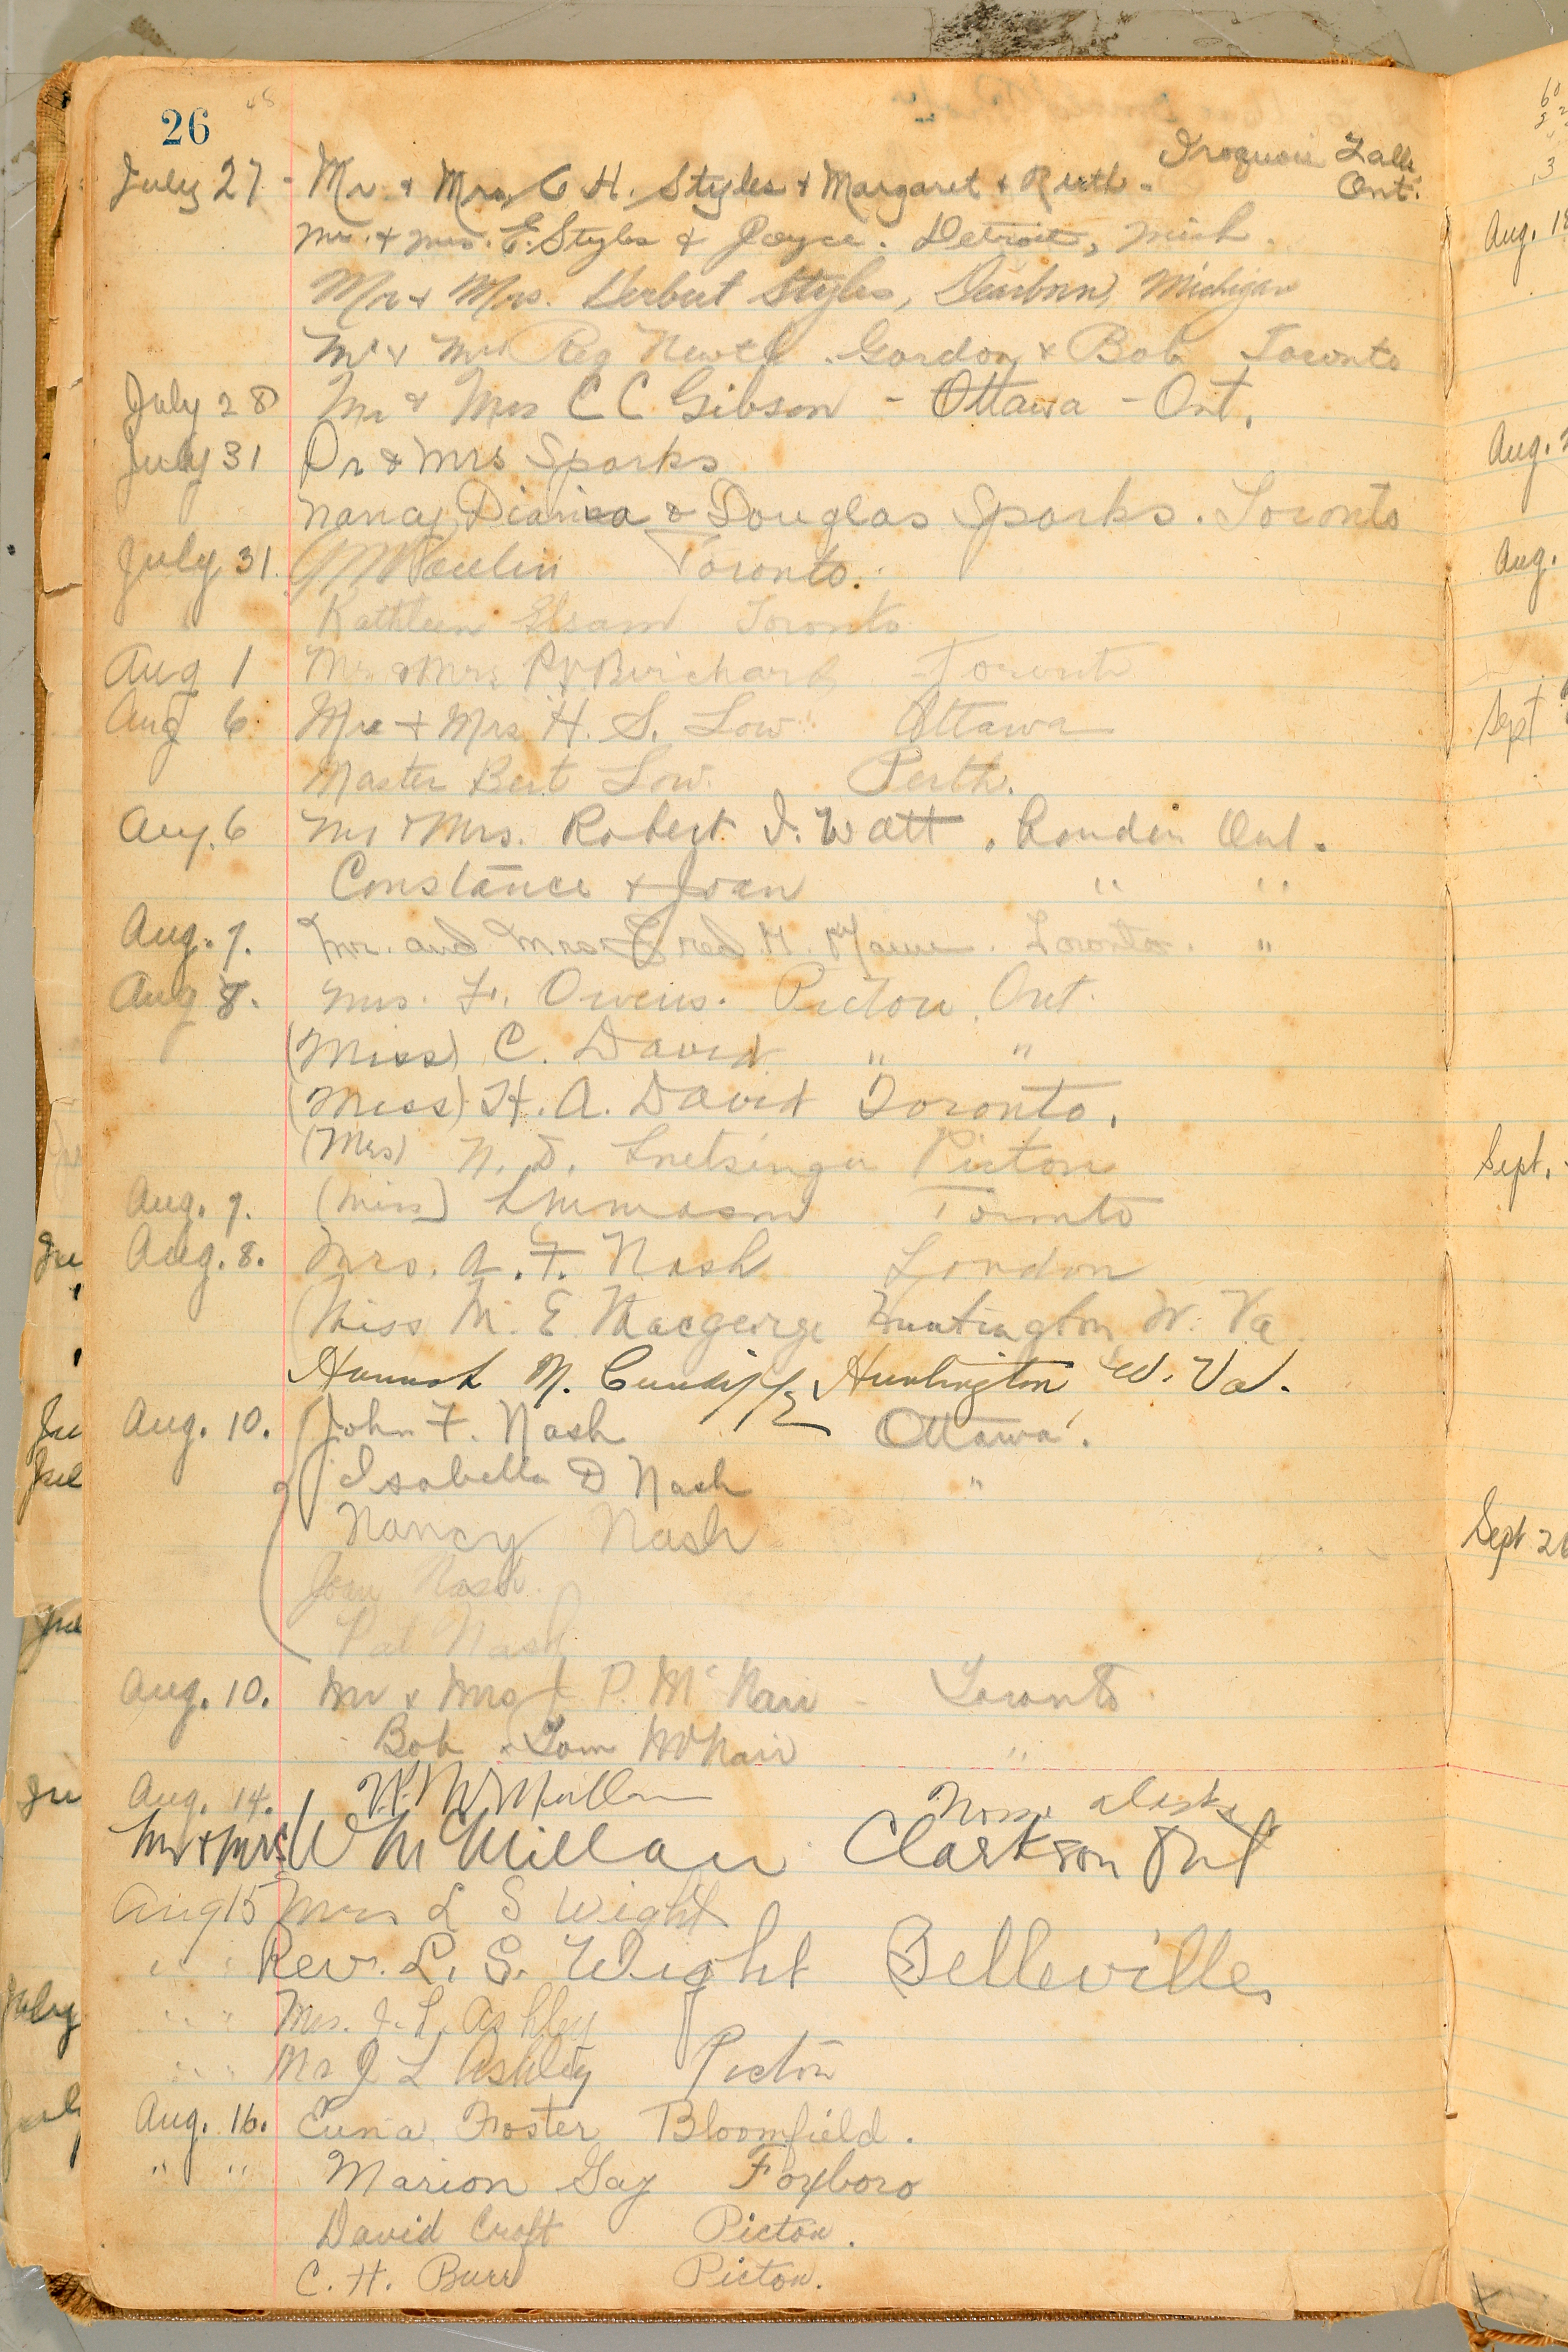 26
45
July 27 - Mr. & Mrs. C. H. Styles & Margaret & Ruth. Iroquois Falls Ont.
Mr. & Mrs. E. Styles & Joyce. Detroit, Mich.
Mr & Mrs. Herbert Styles, Dearborn, Michigan
Mr & Mrs Reg Newth. Gordon & Bob Toronto
July 28 Mr & Mrs C C Gibson - Ottawa - Ont.
July 31 Dr & Mrs Sparks
Nancy, Diana & Douglas Sparks. Toronto
July 31. Toronto.
Kathleen Elsam Toronto
Aug 1 Mr & Mrs Toronto
Aug 6 Mr + Mrs H. S. Low Ottawa
Master Bert Low. Perth.
Aug. 6 Mr & Mrs. Robert I. Watt, London Ont.
Constance & Joan " "
Aug. 7. Mr. and Mrs. Fred Toronto. "
Aug 8. Mrs. F. Owens. Picton, Ont.
(Miss) C. David " "
(Miss) H. A. David Toronto.
(Mrs) N. D. Snetsinger Picton
Aug. 9. (Miss) Toronto
Aug. 8. Mrs. A. F. Nash London
(Miss M. E. Macgeorge Huntington W. Va.
Hannah N. Cundiff, Huntington W. Va.
Aug. 10. John F. Nash Ottawa.
Isabella D Nash "
Nancy Nash
Joan Nash.
Pat Nash
Aug. 10. Mr & Mrs J. P. McNair - Toronto
Bob & Tom McNair "
Aug. 14. W. McMillan Nome Alaska
Mr & Mrs W McMillan Clarkson Ont
Aug 15 Mrs L S Wight
" " Rev. L. S. Wight Belleville
" " Mrs. J. L. Ashley
" " Mr J L Ashley Picton
Aug. 16. Euna Foster Bloomfield.
" " Marion Gay Foxboro
David Croft Picton.
C. H. Burr Picton.
Aug.
Aug.
Aug.
Sept
Sept.
Sept